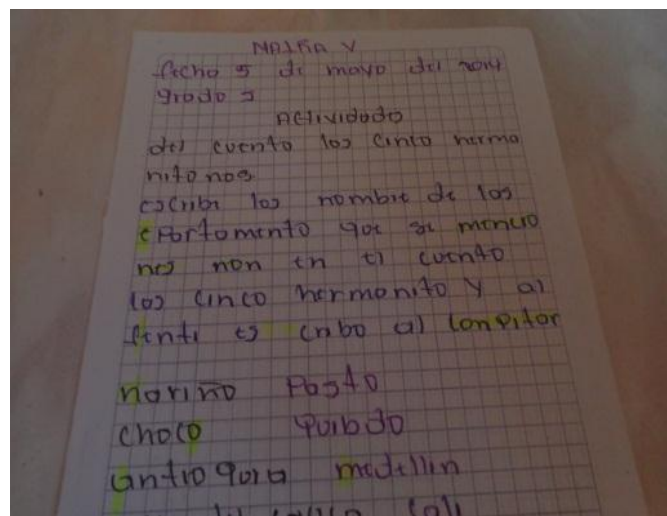 MAIRA V
fecho 5 di mayo del 2014
grodo 5
ACtividodo
del cuento los cinco hermo
nito nos
escribi los nombre de los
eportomento que se mencio
nes non en el cuento
los cinco hermonito y al
fenti es cribo al lonpitor
noriño Posto
choco quibdo
antioqora medellin
cali